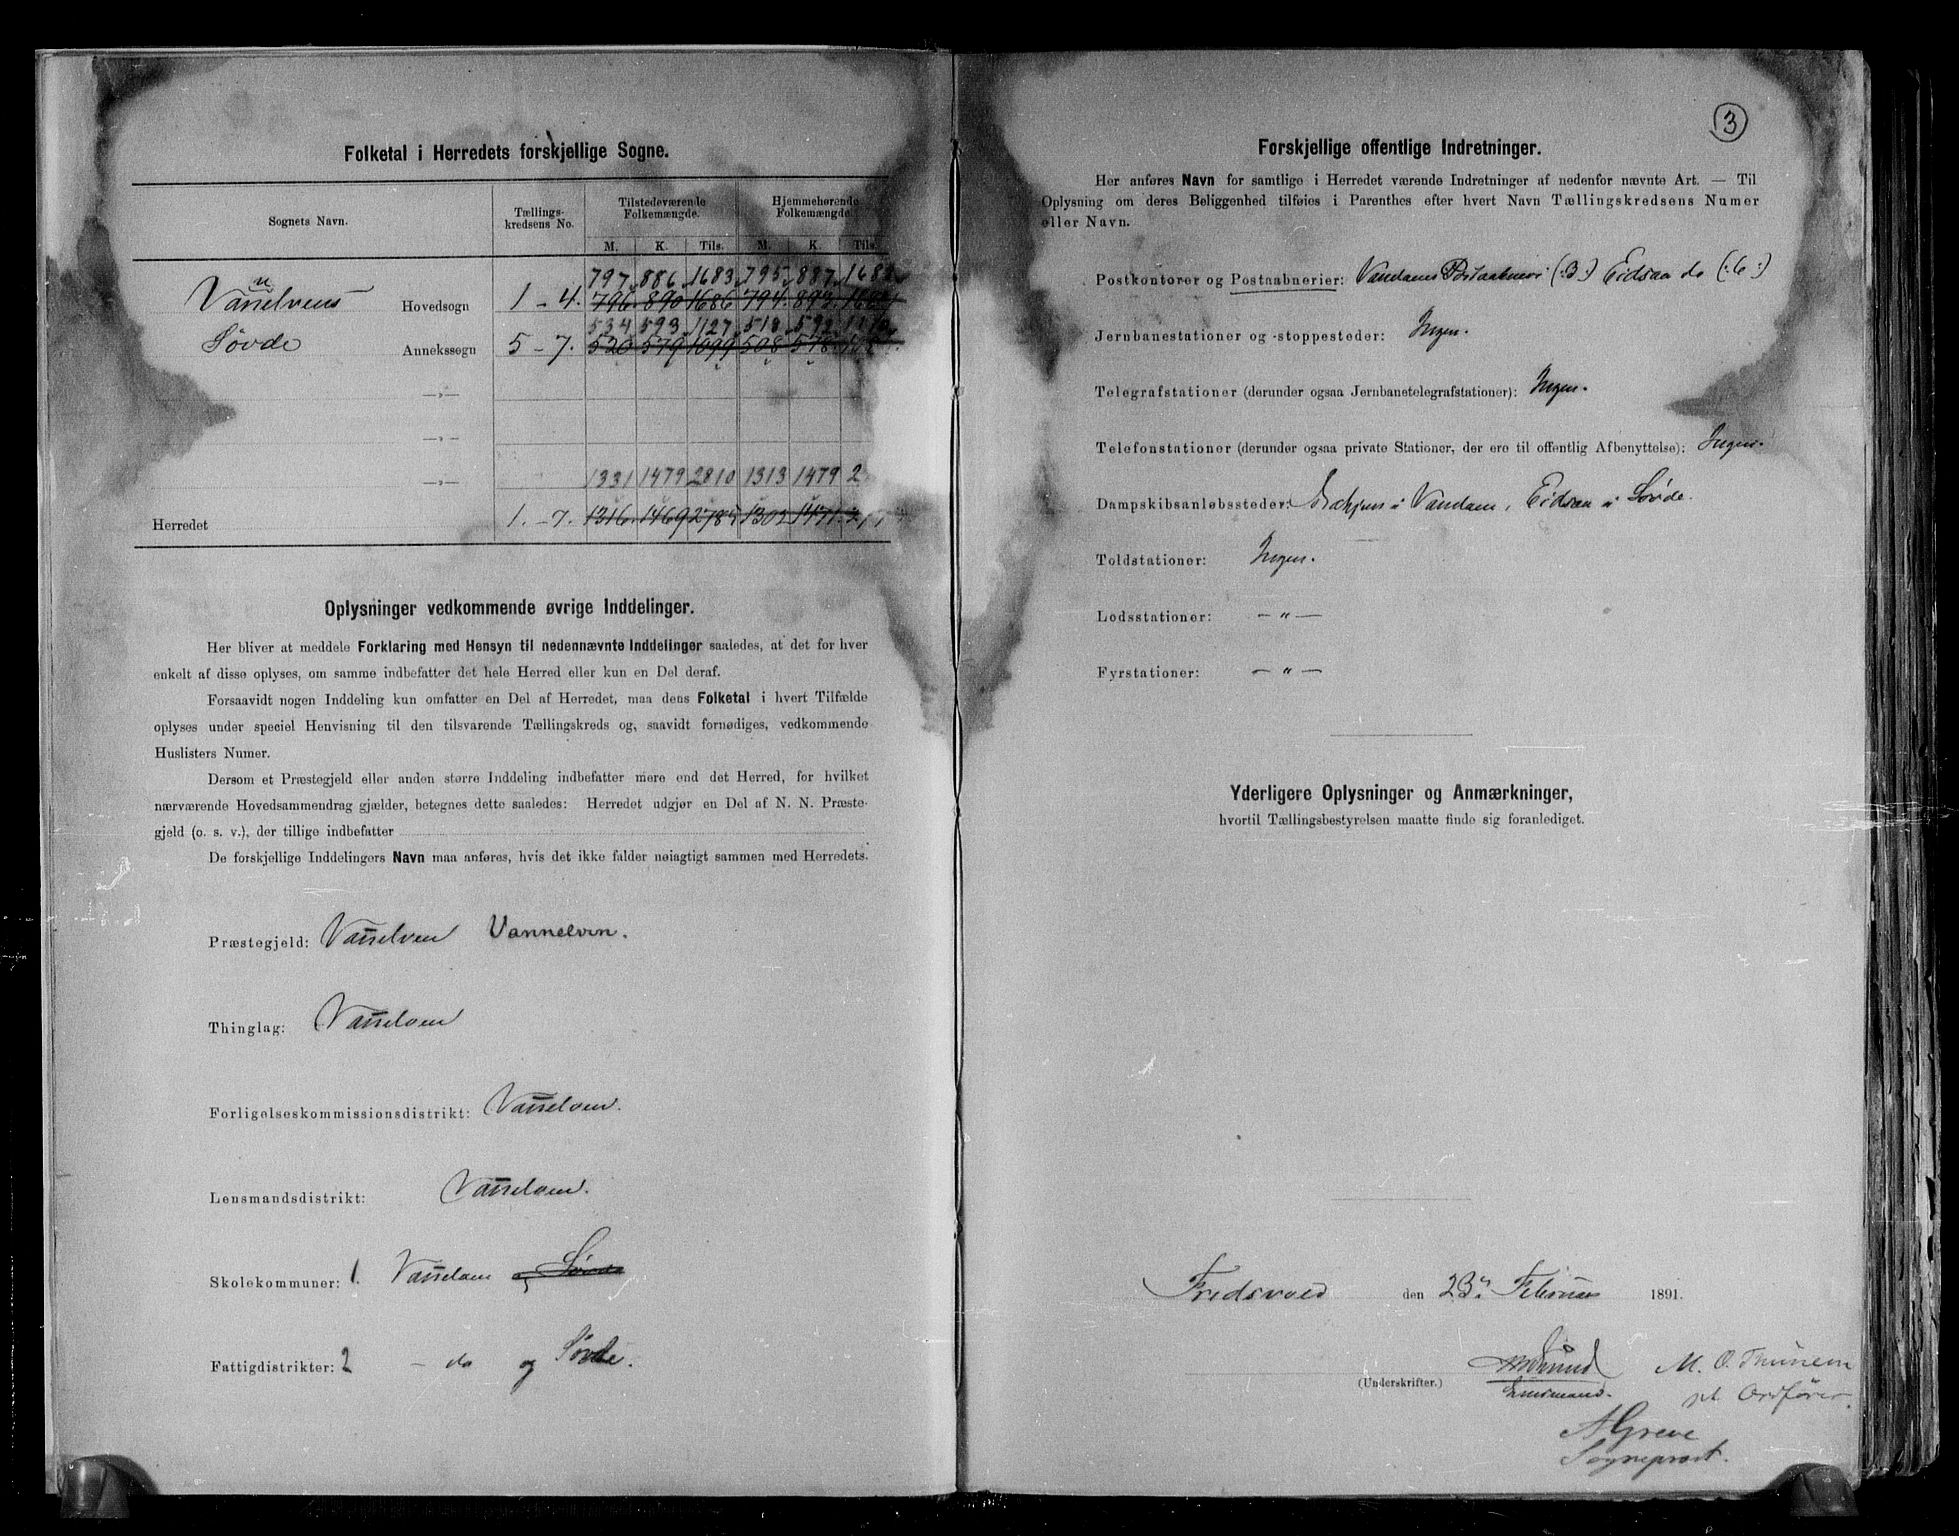 Folketal i Herredets forskjellige Sogne.
Sognets Navn. Tællings- Tilstedeværende Hjemmehørende
kredsens No. Folkemængde. Folkemængde.
M. K. Tils. M. K. Tils.
797 886 1683 795 887 168
Vannelvens Hovedsogn 1-4. 796 890 1686 794 893
534 593 1127 518 592
Søvde Annekssogn 5-7. 520 579 1099 508 578
—„—
—„—
1331 1479 2810 1313 1479 2
—„—
Herredet 1.-7. 1316 1469 2785 1302 1471
Oplysninger vedkommende øvrige Inddelinger.
Her bliver at meddele Forklaring med Hensyn til nedennævnte Inddelinger saaledes, at det for hver
enkelt af disse oplyses, om samme indbefatter det hele Herred eller kun en Del deraf.
Forsaavidt nogen Inddeling kun omfatter en Del af Herredet, maa dens Folketal i hvert Tilfælde
oplyses under speciel Henvisning til den tilsvarende Tællingskreds og, saavidt fornødiges, vedkommende
Huslisters Numer.
Dersom et Præstegjeld eller anden større Inddeling indbefatter mere end det Herred, for hvilket
nærværende Hovedsammendrag gjælder, betegnes dette saaledes: Herredet udgjør en Del af N. N. Præste-
gjeld (o. s. v.), der tillige indbefatter
De forskjellige Inddelingers Navn maa anføres, hvis det ikke falder nøiagtigt sammen med Herredets.
Præstegjeld: Vanelven Vannelven.
Thinglag: Vanelven
Forligelseskommissionsdistrikt: Vanelven.
Lensmandsdistrikt: Vanelven.
Skolekommuner: 1. Vanelven og Søvde
Fattigdistrikter: 2 - do og Søvde.
3
Forskjellige offentlige Indretninger.
Her anføres Navn for samtlige i Herredet værende Indretninger af nedenfor nævnte Art. — Til
Oplysning om deres Beliggenhed tilføies i Parenthes efter hvert Navn Tællingskredsens Numer
eller Navn.
Postkontorer og Postaabnerier: Vandams Postaabneri (:3:) Eidsaa do (:6:)
Jernbanestationer og -stoppesteder: Ingen.
Telegrafstationer (derunder ogsaa Jernbanetelegrafstationer): Ingen.
Telefonstationer (derunder ogsaa private Stationer, der ere til offentlig Afbenyttelse): Ingen.
Dampskibsanløbssteder: i Vandam, Eidsaa i Søvde.
Toldstationer: Ingen.
Lodsstationer: — „ —
Fyrstationer: — „ —
Yderligere Oplysninger og Anmærkninger,
hvortil Tællingsbestyrelsen maatte finde sig foranlediget.
Fredsvold den 23. Februar 1891.
M. O. Thunem
(Underskrifter.)
Lensmand. pt. Ordfører.
A Greve
Sogneprest.